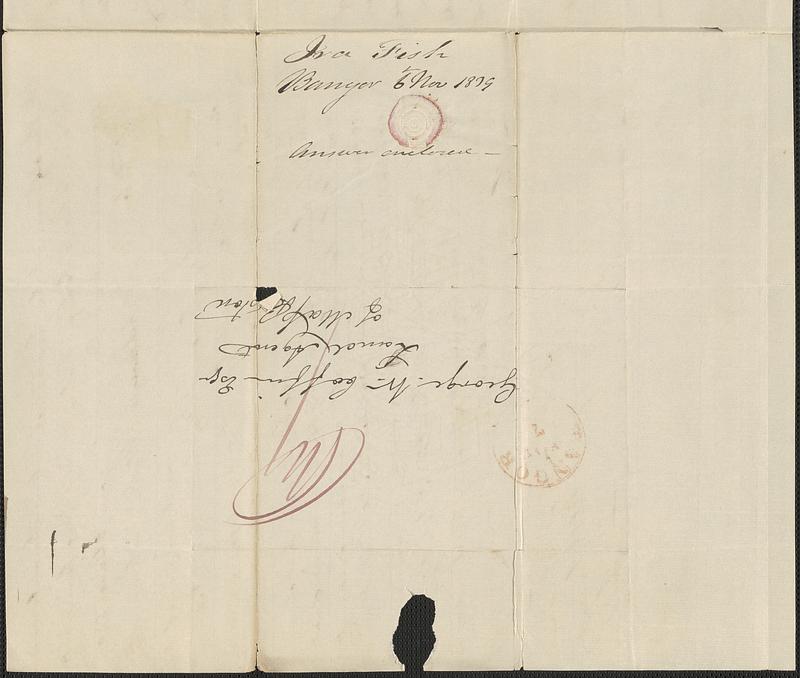 Ira Fish
Bangor 6 Nov 1839
Answer enclosed —
George W. Coffin Esqr
Land Agent
of Mass Boston
BANGOR